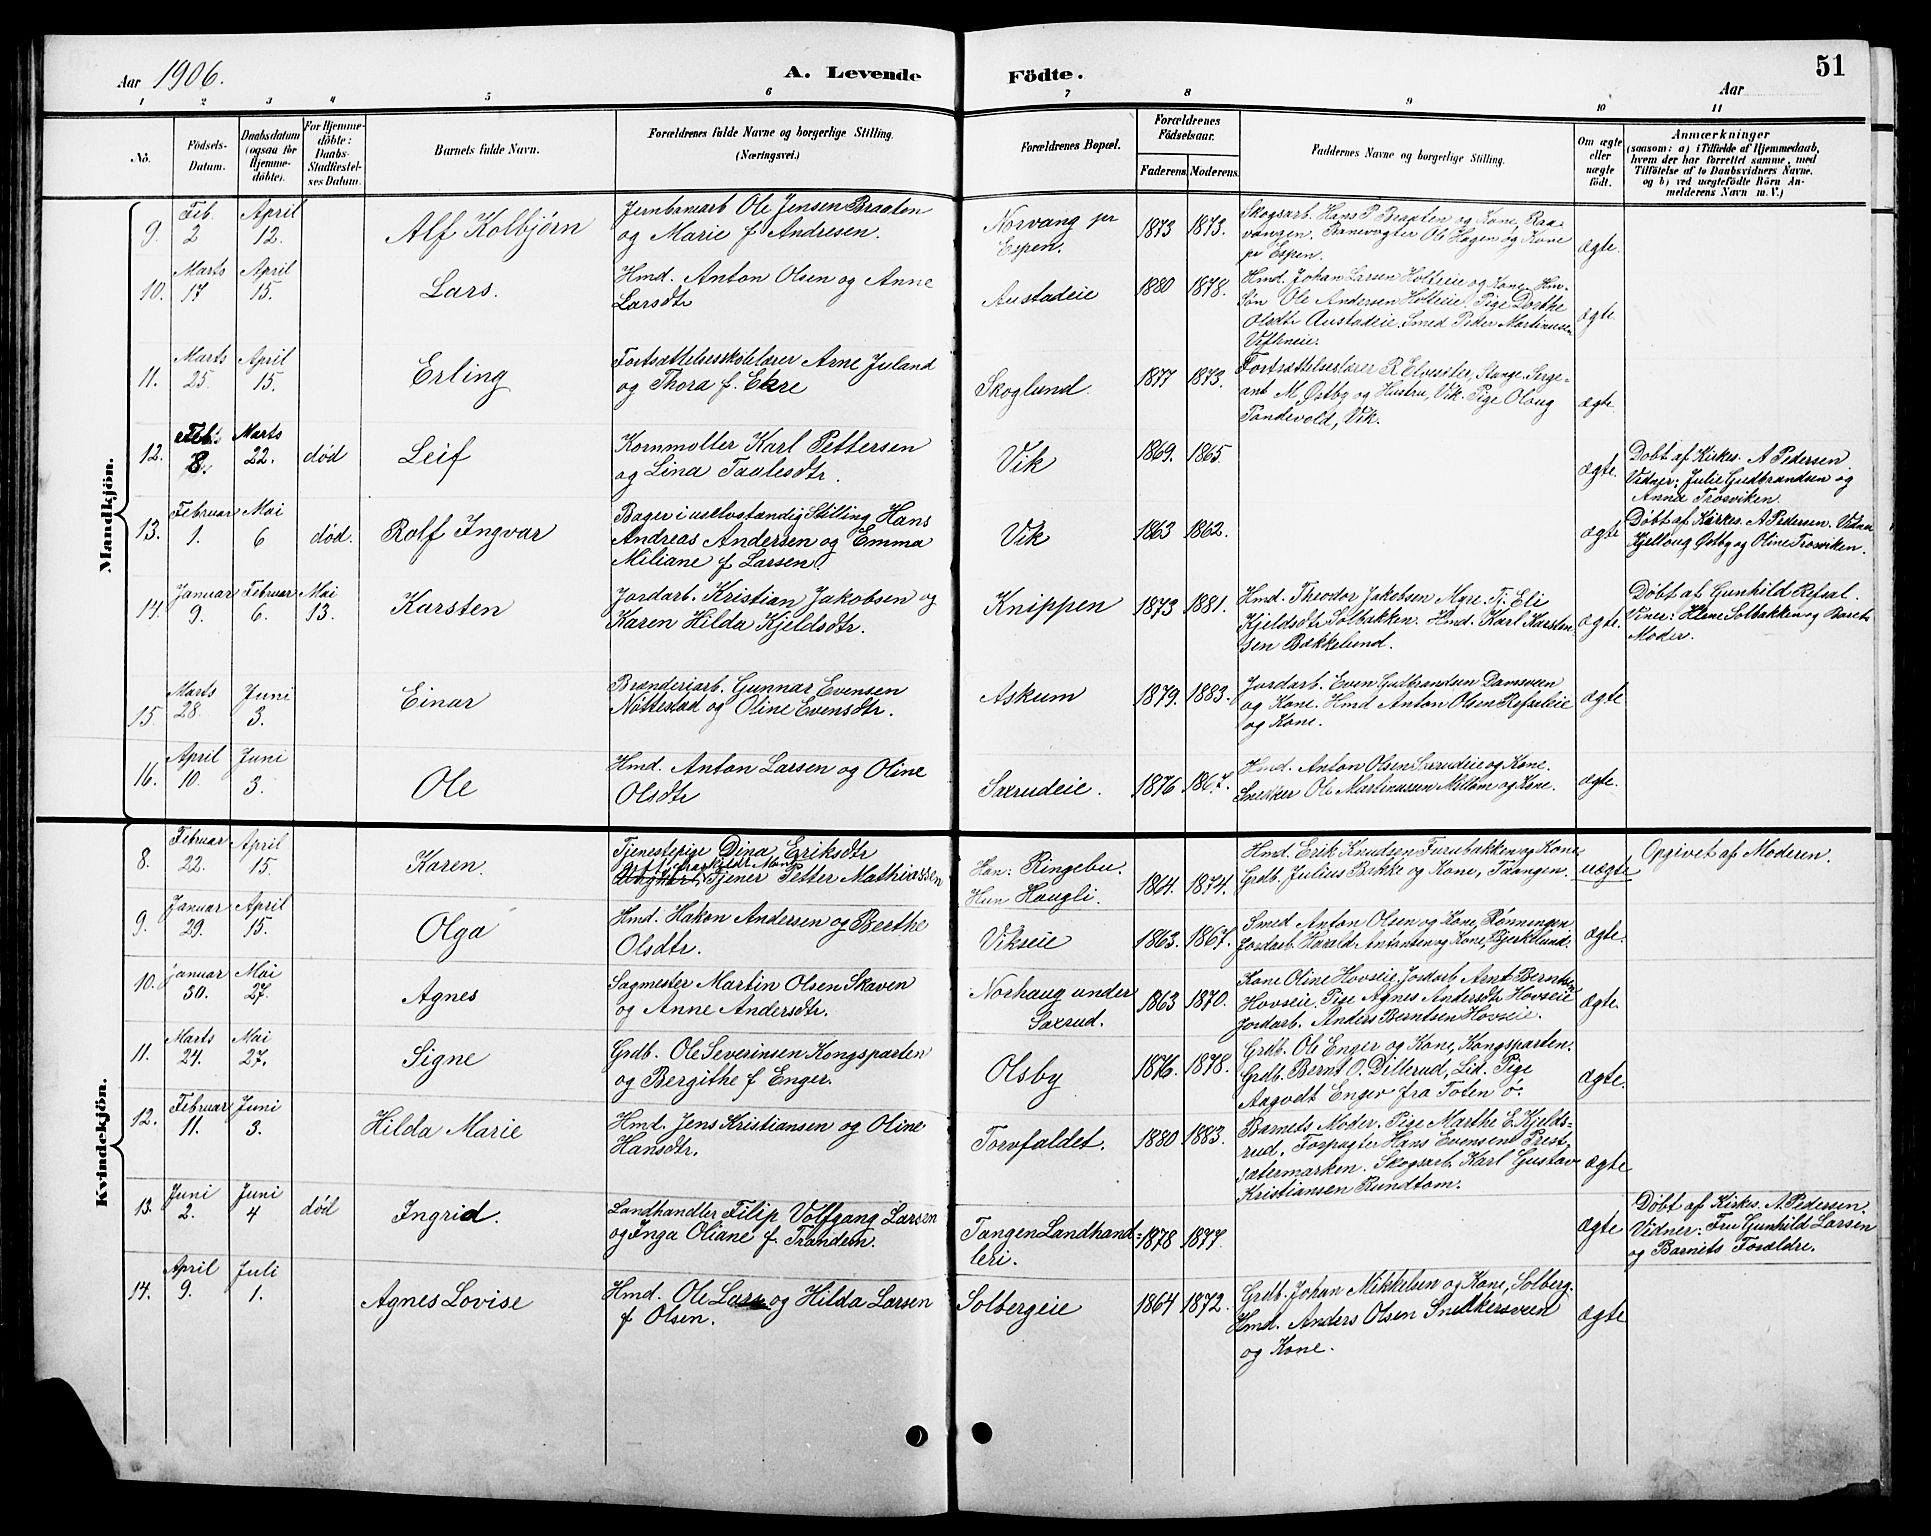 Aar 1906.
A. Levende Födte.
Aar
51
1 2 3 4 5 6 7 8 9 10 11
No.
Födsels-
Datum.
Daabsdatum
(ogsaa for
Hjemme-
döbte).
For Hjemme-
döbte:
Daabs-
Stadfæstel-
ses Datum.
Barnets fulde Navn.
Forældrenes fulde Navne og borgerlige Stilling.
(Næringsvei.)
Forældrenes Bopæl.
Forældrenes
Födselsaar.
Faderens. Moderens.
Faddernes Navne og borgerlige Stilling.
Om ægte
eller
uægte
födt.
Anmærkninger
(saasom: a) i Tilfælde af Hjemmedaab,
hvem der har forrettet samme, med
Tilföielse af to Daabsvidners Navne.
og b) ved uægtefödte Börn An-
melderens Navn m. V.)
Mandkjön.
9. Feb. 2 April 12. Alf Kolbjörn
Jernbanearb Ole Jensen Braaten
og Marie f Andresen.
Norvang pr
Espen.
1873 1873.
Skogsarb. Hans P. Braaten og Kone, Raa-
vangen. Banevogter Ole Hagen og Kone
pr Espen.
ægte.
10. Marts 17 April 15. Lars.
Hmd. Anton Olsen og Anne
Larsdtr
Austadeie
1880 1878.
Hmd. Johan Larsen Holteie og Kone.
Søn Ole Andersen Holteie. Pige Dorthe
Olsdtr Austadeie. Smed Peder Martinusen
ægte.
11. Marts 25. April 15. Erling
Fortsættelsesskolelærer Arne Juland
og Thora f. Ekre
Skoglund
1877 1873.
Fortsættelseslærer R. Elvesæter, Stange. Serge-
ant M Østby og Hustru, Vik. Pige Oloug
Tandevold, Vik.
ægte.
12. Feb. 8. Marts 22. død Leif
Kornmøller Karl Pettersen
og Lina Taalesdtr.
Vik
1869. 1865.
ægte.
Døbt af Kirkes. A Pedersen
Vidner: Julie Gudbrandsen og
Anna Trosviken.
13. Februar 1. Mai 6 død. Rolf Ingvar
Bager i uselvstændig Stilling Hans
Andreas Andersen og Emma
Miliane f Larsen.
Vik
1863 1862.
ægte
Døbt af Kirkes. A Pedersen. Vidne
Kjelloug Østby og Oline Trosviken.
14. Januar 9. Februar 6. Mai 13. Karsten
Jordarb. Kristian Jakobsen og
Karen Hilda Kjeldsdtr.
Knippen
1873 1881.
Hmd. Theodor Jakobsen Myre. Tj. Eli
Kjeldsdtr Solbakken. Hmd. Karl Karsten-
sen Bakkelund.
ægte.
Døbt af Gunhild Refsal.
Viner: Helene Solbakken og Barets
Moder.
15. Marts 28. Juni 3. Einar
Brænderiarb. Gunnar Evensen
Nøttestad og Oline Evensdtr.
Askum
1879. 1883.
Jordarb. Even Gudbrandsen Dansveen
og Kone. Hmd Anton Olsen Refsaleie
og Kone.
ægte
16. April 10. Juni 3. Ole
Hmd. Anton Larsen og Oline
Olsdtr
Saxrudeie.
1876 1867.
Hmd. Anton Olsen Saxrudeie og Kone.
Snekker Ole Martinussen Mellom og Kone.
ægte.
Kvindekjön.
8. Februar 22. April 15. Karen.
Tjenestepige Dina Eriksdtr
Tjener Petter Mathiassen
Han: Ringebu.
Hun Haugli.
1864. 1874.
Hmd. Erik Knudsen Furubakken og Kone
Grdb. Julius Bekke og Kone, Taangen.
uægte
Opgivet af Moderen.
9. Januar 29. April 15. Olga
Hmd. Hakon Andersen og Berthe
Olsdtr.
Vikseie
1863. 1867.
Smed Anton Olsen og Kone, Rønningen
Jordarb. Harald Antonsen og Kone, Bjerkelund.
ægte.
10. Januar 30. Mai 27. Agnes
Sagmester Martin Olsen Skaven
og Anne Andersdtr.
Norhaug under
Saxrud.
1863 1870.
Kone Oline Hovseie, Jordarb Arnt Berntsen
Hovseie, Pige Agnes Andersdtr Hovseie
Jordarb. Anders Berntsen Hovseie.
ægte.
11. Marts 24. Mai 27. Signe
Grdb. Ole Severinsen Kongsparten
og Bergithe f Enger.
Olsby
1876. 1878.
Grdb. Ole Enger og Kone, Kongsparten.
Grdb. Bernt O. Dillerud, Lid. Pige
Aagodt Enger fra Toten ö.
ægte.
12. Februar 11. Juni 3. Hilda Marie
Hmd. Jens Kristiansen og Oline
Hansdtr.
Torvfaldet.
1880 1883.
Barnets Moder. Pige Marthe E. Kjelds-
rud. Forpagter Hans Evensen Prest-
sætermarken. Skogsarb. Karl Gustav
Kristiansen Rundtom.
ægte
13. Juni 2. Juni 4 død Ingrid.
Landhandler Filip Volfgang Larsen
og Inga Oliane f. Trandem.
Tangen Landhand-
leri.
1878 1877.
ægte
Døbt af Kirkes. A. Pedersen.
Vidner: Fru Gunhild Larsen
og Barnets Forældre.
14. April 9. Juli 1. Agnes Lovise
Hmd. Ole Lars og Hilda Larsen
f Olsen.
Solbergeie
1864 1872.
Grdb. Johan Mikkelsen og Kone, Solberg.
Hmd. Anders Olsen Snekkersveen
og Kone.
ægte